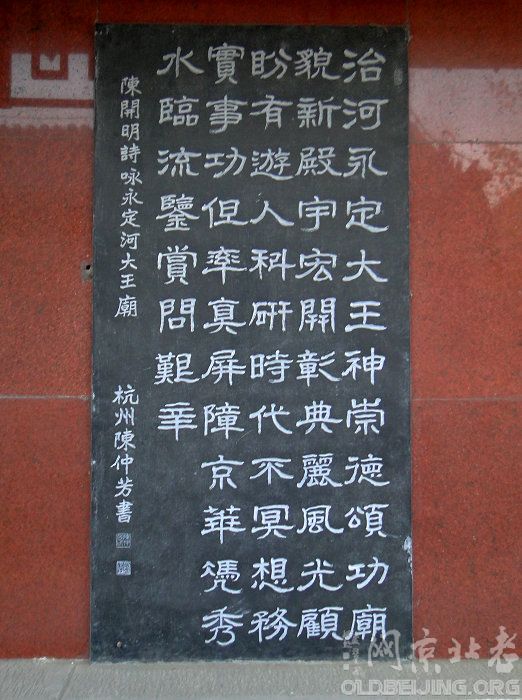 治河永定大王神崇德頌功廟
貌新殿宇宏開彰典麗風光顧
盼有遊人科研時代不冥想務
實事功但率真屏障京華凴秀
水臨流鑒賞問艱辛
陳開明詩咏永定河大王廟
杭州陳仲芳書
老北京网
OLDBEIJING.ORG